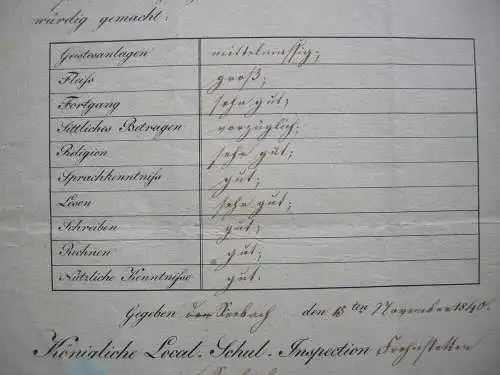 würdig gemacht:
Geistesanlagen mittelmässig;
Fleiss groß;
Fortgang sehr gut;
Sittliches Betragen vorzüglich;
Religion sehr gut;
Sprachkenntniss gut;
Lesen sehr gut;
Schreiben gut;
Rechnen gut;
Nützliche Kenntnisse gut.
Gegeben Seebach den 15ten November 1840.
Königliche Local-Schul-Inspection